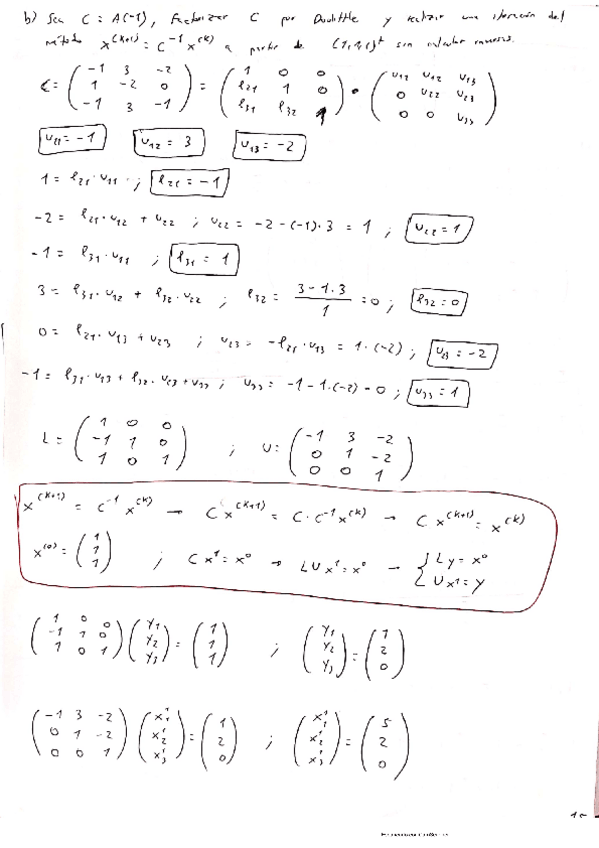 b) Sea C = A(-1), Factorizar C por Doolittle y realizar una iteración del
método x^(k+1) = C^-1 x^(k) a partir de (1,1,1)^t sin calcular inversas.
C = ( -1 3 -2 ; 1 -2 0 ; -1 3 -1 ) = ( 1 0 0 ; l21 1 0 ; l31 l32 1 ) · ( u11 u12 u13 ; 0 u22 u23 ; 0 0 u33 )
u11 = -1 u12 = 3 u13 = -2
1 = l21 · u11 ; l21 = -1
-2 = l21 · u12 + u22 ; u22 = -2 - (-1) · 3 = 1 ; u22 = 1
-1 = l31 · u11 ; l31 = 1
3 = l31 · u12 + l32 · u22 ; l32 = (3 - 1 · 3)/1 = 0 ; l32 = 0
0 = l21 · u13 + u23 ; u23 = -l21 · u13 = 1 · (-2) ; u23 = -2
-1 = l31 · u13 + l32 · u23 + u33 ; u33 = -1 - 1 · (-2) - 0 ; u33 = 1
L = ( 1 0 0 ; -1 1 0 ; 1 0 1 ) ; U = ( -1 3 -2 ; 0 1 -2 ; 0 0 1 )
x^(k+1) = C^-1 x^(k) → C x^(k+1) = C · C^-1 x^(k) → C x^(k+1) = x^(k)
x^(0) = ( 1 ; 1 ; 1 ) ; C x^1 = x^0 → L U x^1 = x^0 → { L y = x^0 ; U x^1 = y
( 1 0 0 ; -1 1 0 ; 1 0 1 ) ( y1 ; y2 ; y3 ) = ( 1 ; 1 ; 1 ) ; ( y1 ; y2 ; y3 ) = ( 1 ; 2 ; 0 )
( -1 3 -2 ; 0 1 -2 ; 0 0 1 ) ( x1^1 ; x2^1 ; x3^1 ) = ( 1 ; 2 ; 0 ) ; ( x1^1 ; x2^1 ; x3^1 ) = ( 5 ; 2 ; 0 )